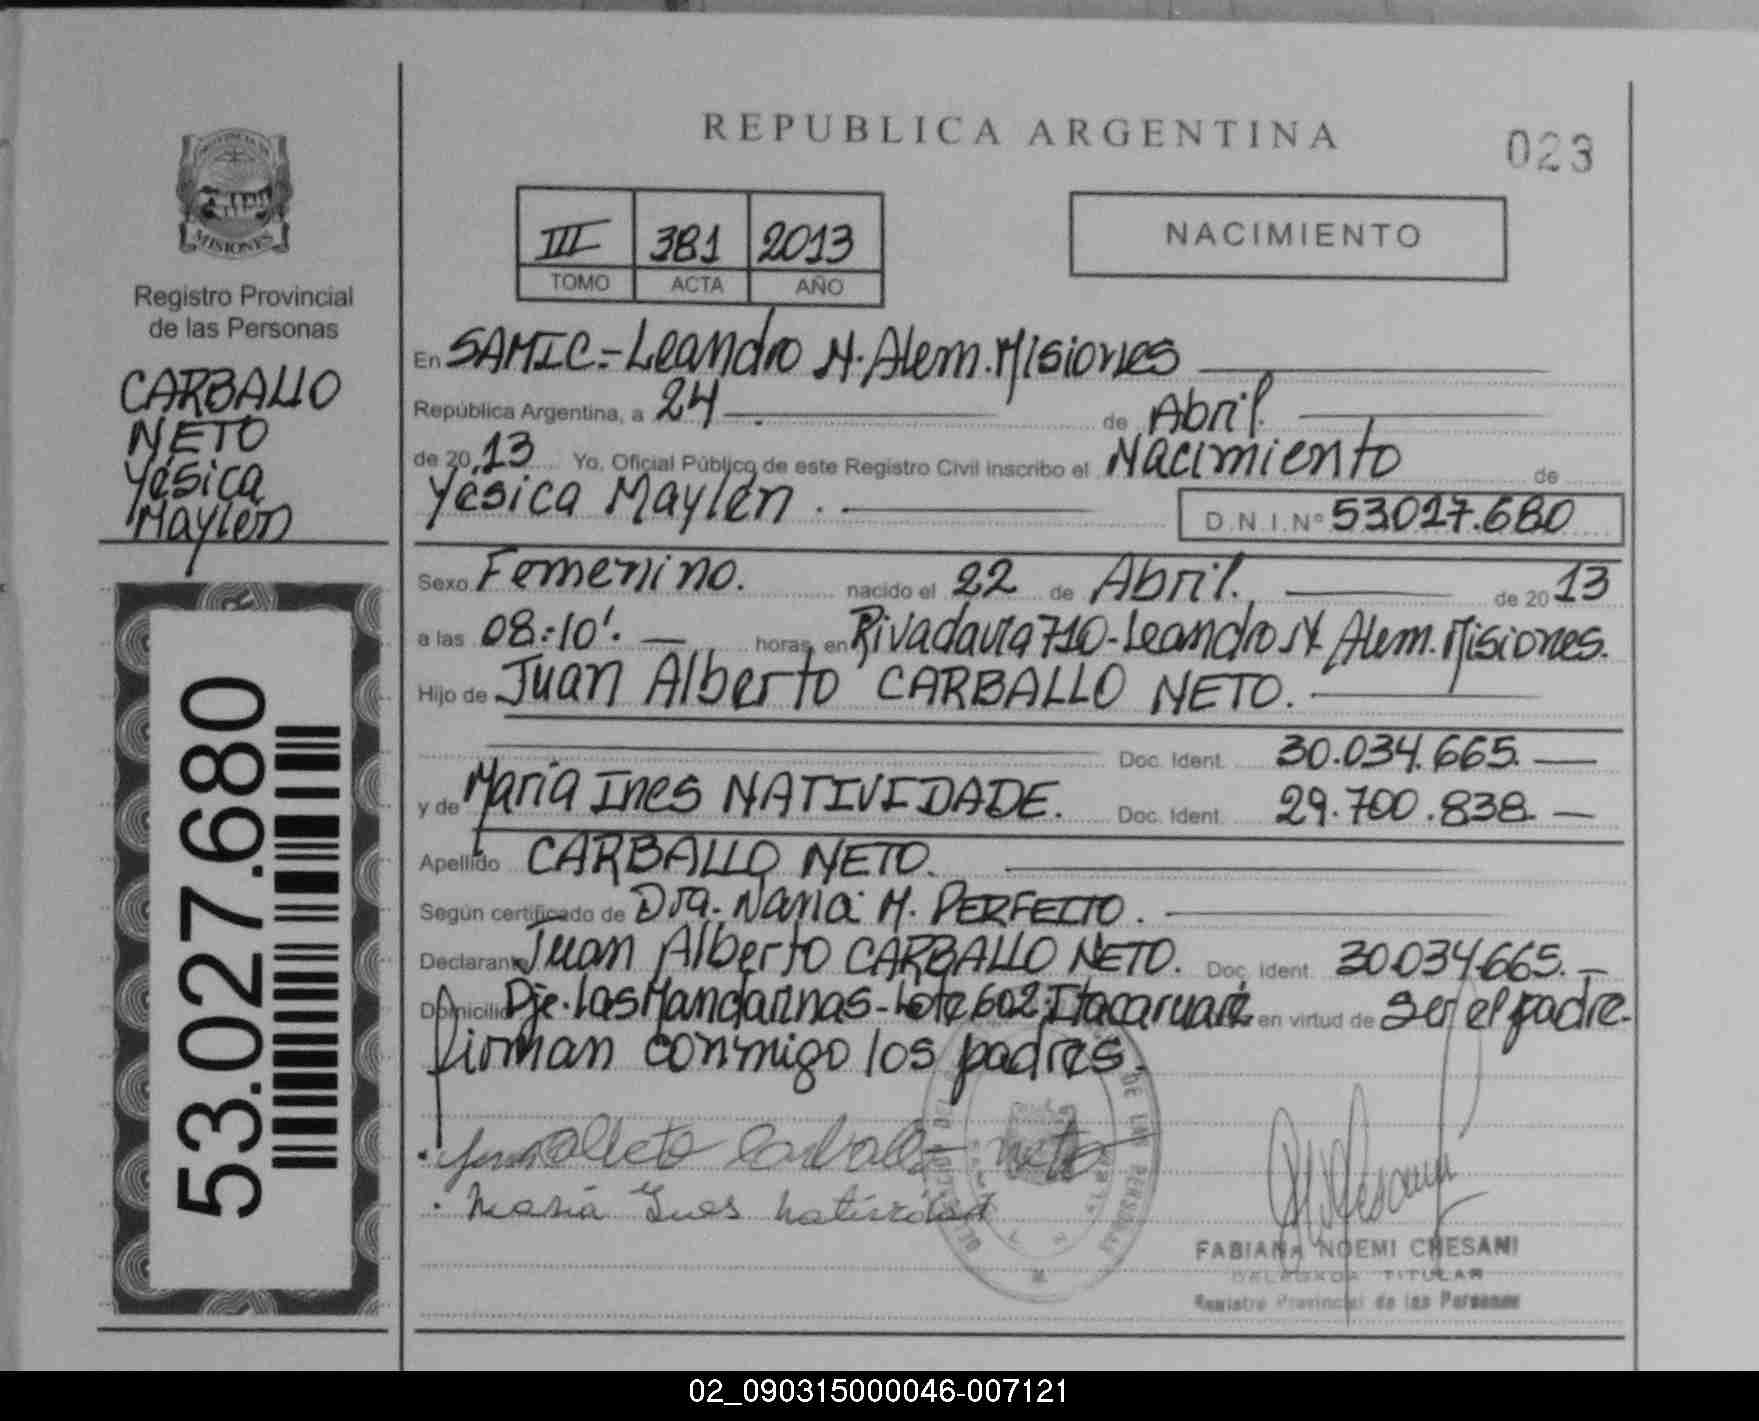 REPUBLICA ARGENTINA
023
MISIONES
Registro Provincial
de las Personas
CARBALLO
NETO
Yésica
Maylén
53.027.680
III 381 2013
TOMO ACTA AÑO
NACIMIENTO
En SAMIC.-Leandro N. Alem. Misiones
República Argentina, a 24 de Abril.
de 20 13 Yo, Oficial Público de este Registro Civil inscribo el Nacimiento de
Yésica Maylén. D.N.I. Nº 53.027.680
Sexo Femenino. nacido el 22 de Abril. de 20 13
a las 08:10'. horas, en Rivadavia 710-Leandro N. Alem. Misiones.
Hijo de Juan Alberto CARBALLO NETO.
Doc. Ident. 30.034.665.
y de María Ines NATIVIDADE. Doc. Ident. 29.700.838.
Apellido CARBALLO NETO.
Según certificado de Dra. M. PERFECTO.
Declarante Juan Alberto CARBALLO NETO. Doc. Ident. 30.034.665.
Domicilio Pje. Las Mandarinas-Lote 602. Itacaruaré en virtud de ser el padre.
firman conmigo los padres.
Carballo neto
María Ines
DE LAS PERSONAS
FABIANA NOEMI CHESANI
DELEGADA TITULAR
Registro Provincial de las Personas
02_090315000046-007121